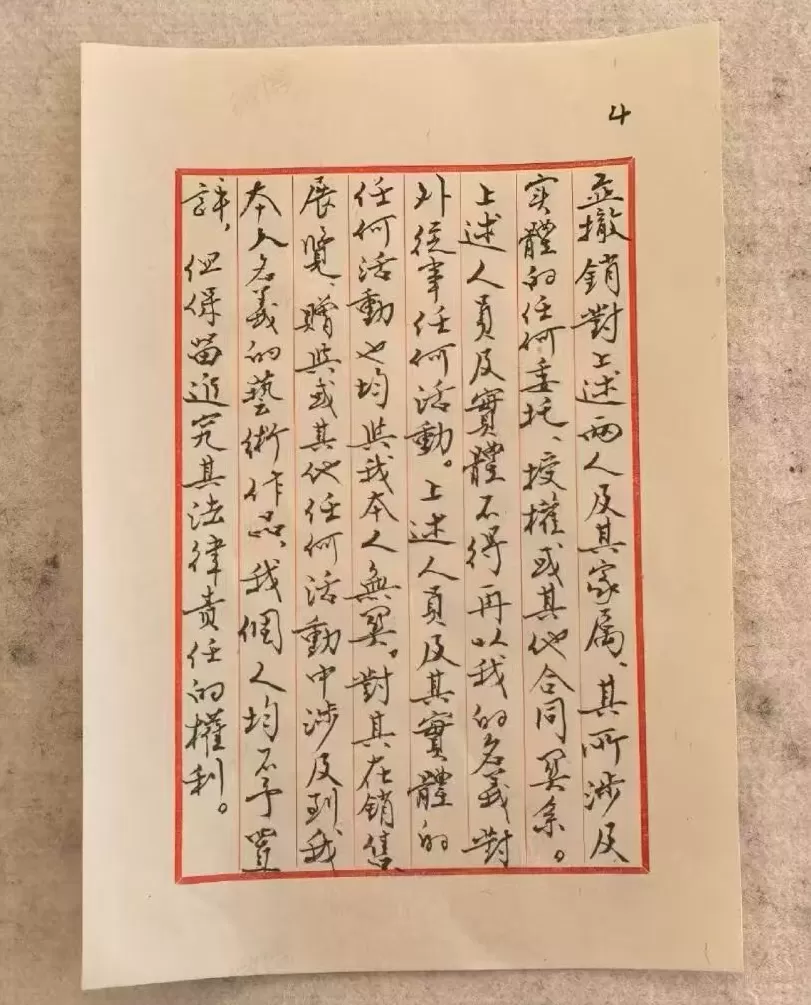 4
並撤銷對上述兩人及其家属、其所涉及
实體的任何委托、授權或其他合同関系。
上述人員及實體不得再以我的名義對
外從事任何活動。上述人員及其實體的
任何活動也均與我本人無関。對其在銷售
展覽、贈與或其他任何活動中涉及到我
本人名義的藝術作品、我個人均不予置
評，但保留追究其法律責任的權利。